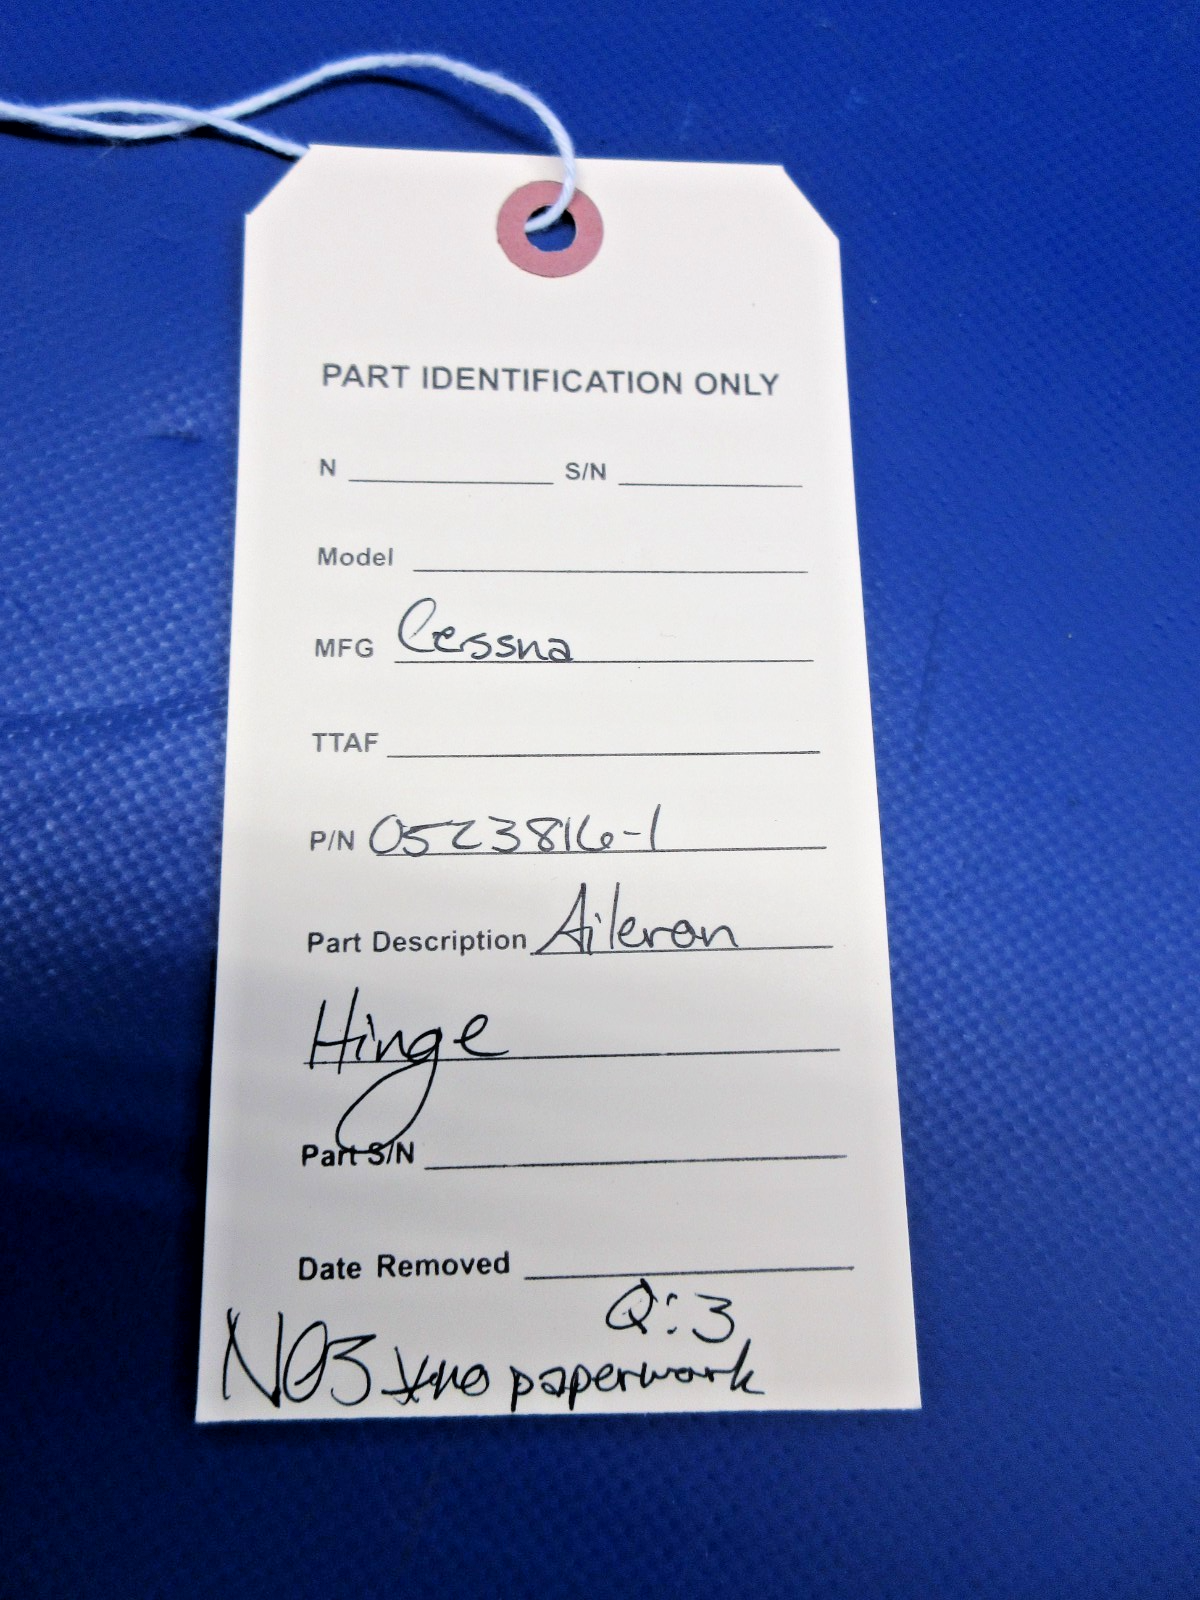 PART IDENTIFICATION ONLY
N S/N
Model
MFG Cessna
TTAF
P/N 0523816-1
Part Description Aileron
Hinge
Part S/N
Date Removed
Q: 3
NO3 no paperwork